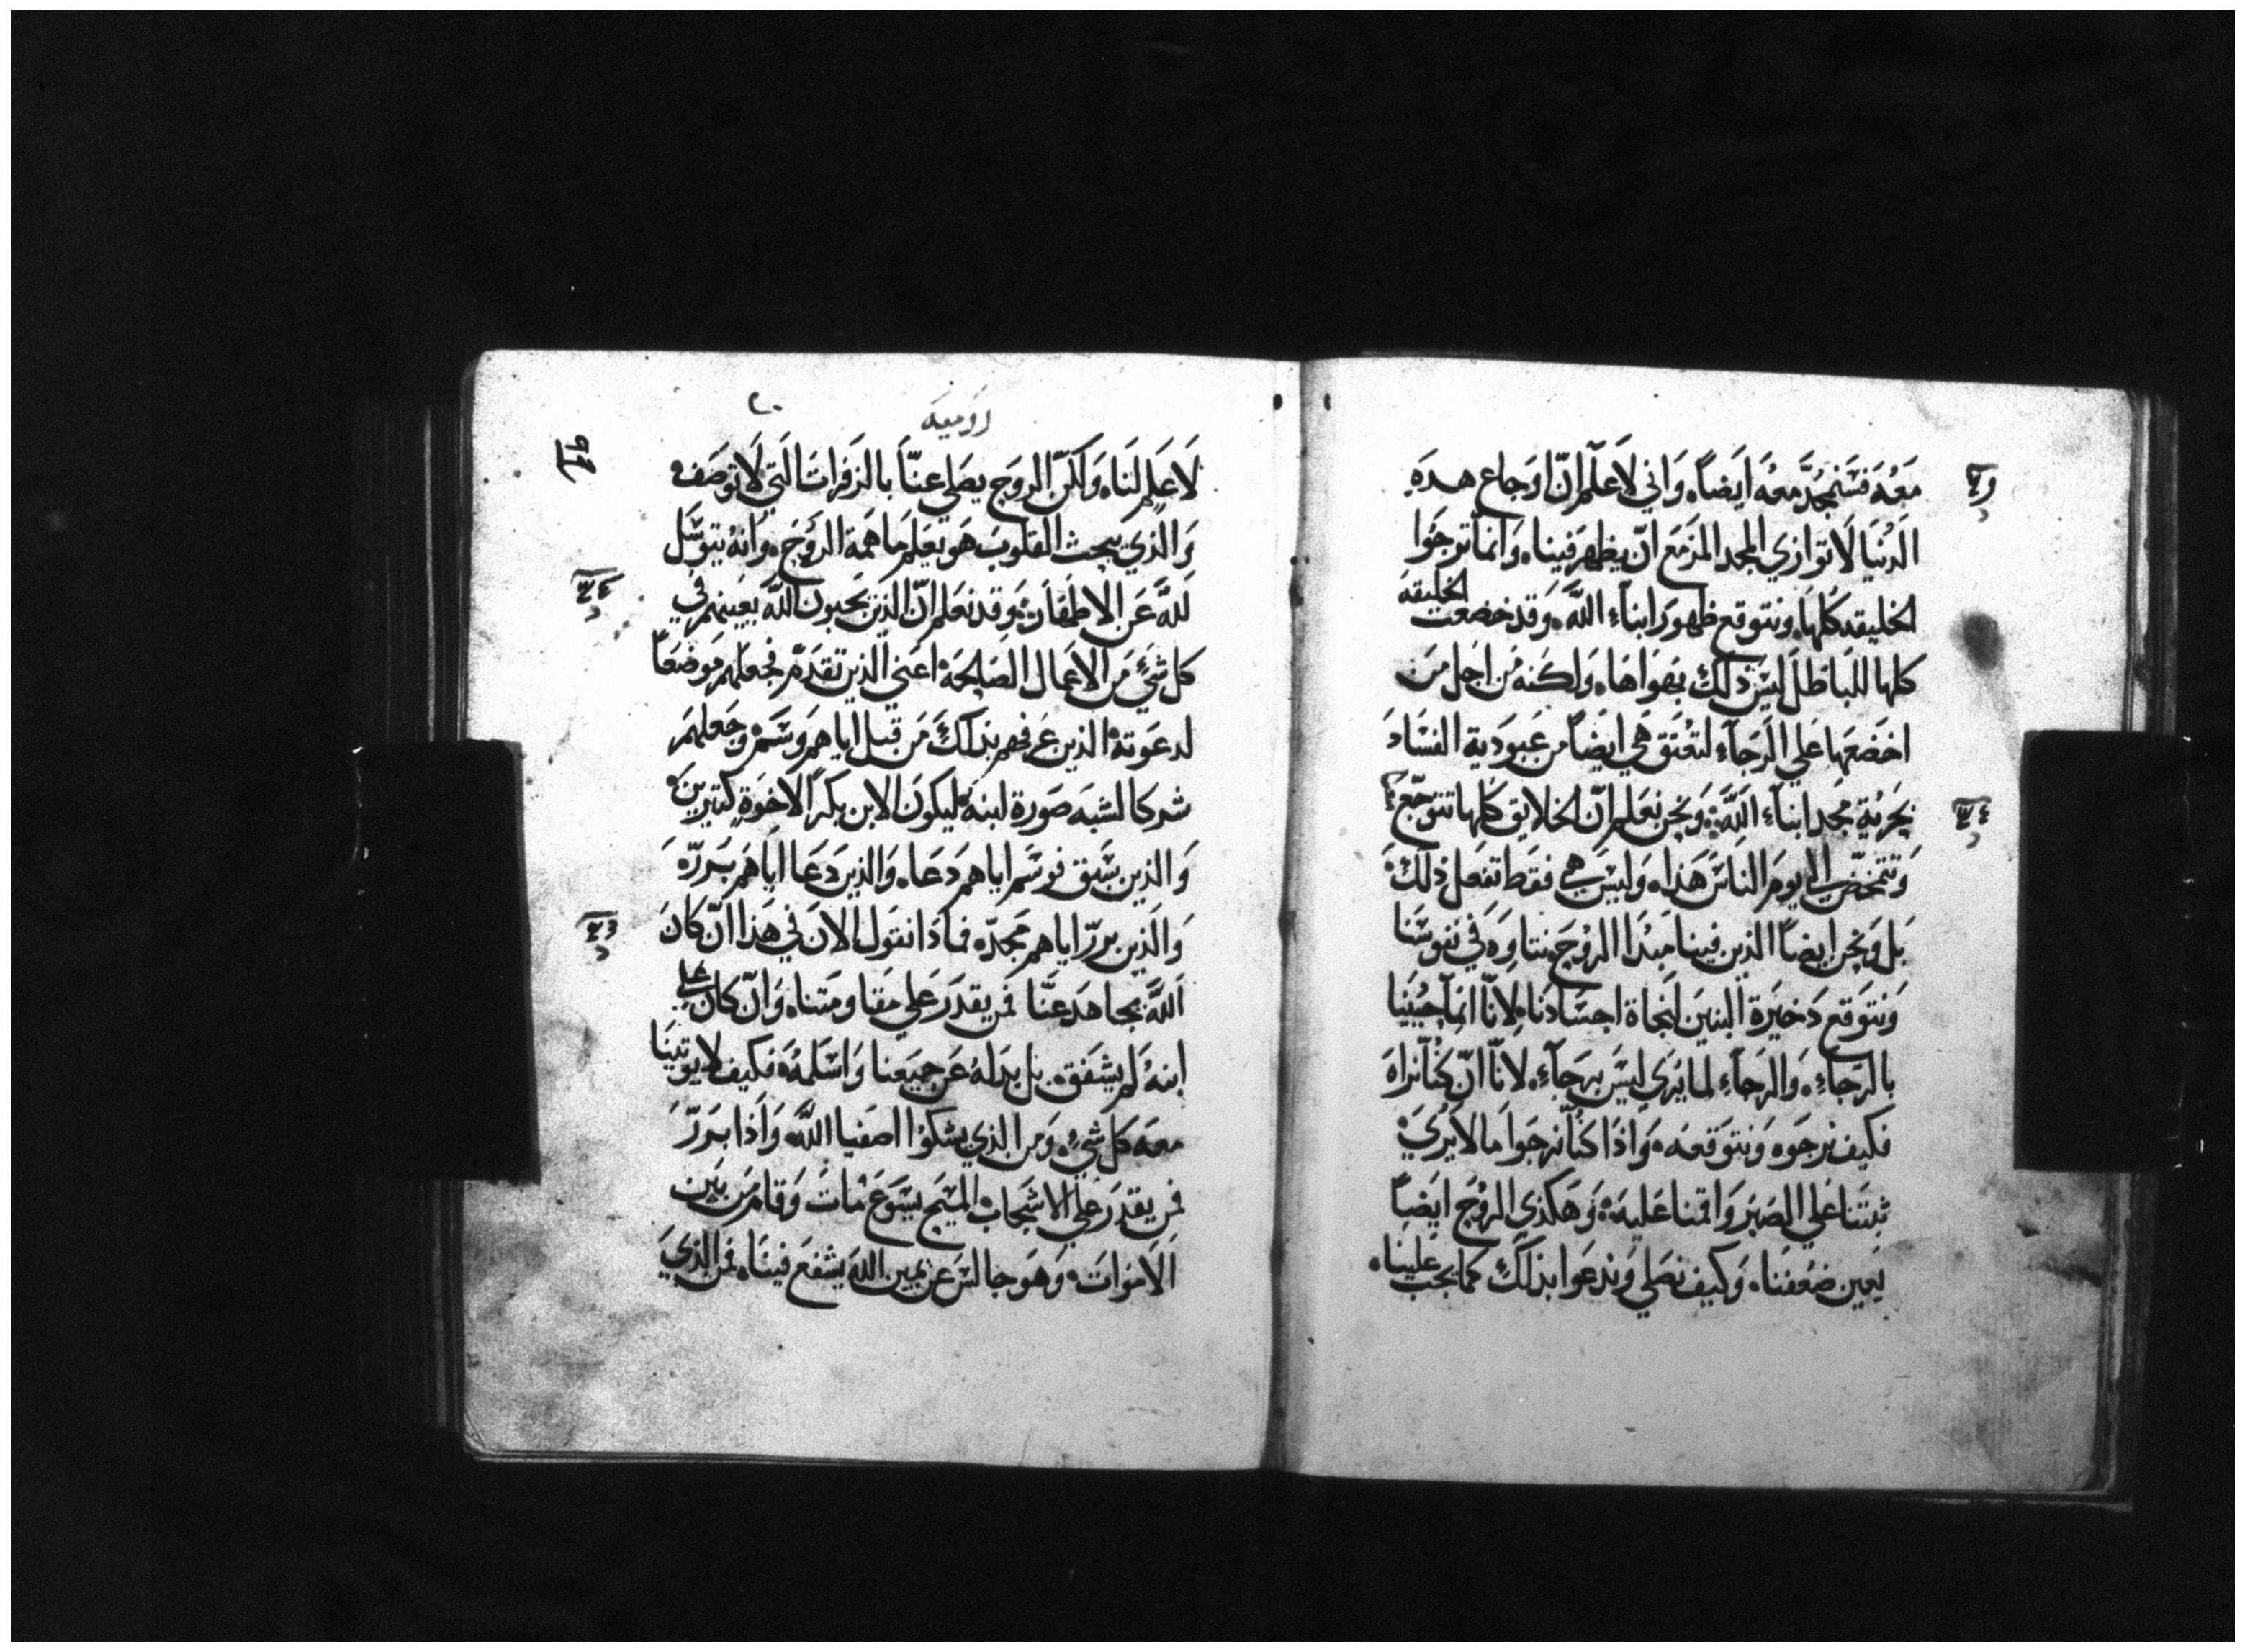 معه فسنمجد معه ايضاً واني لاعلم ان اوجاع هده
الدنيا لا توازي المجد المزمع ان يظهر فينا وانما ترجوا
الخليقه كلها ونتوقع ظهور ابناء الله وقد خضعت الخليقه
كلها للباطل ليس ذلك بهواها ولكنه من اجل من
اخضعها علي الرجاء لتعتق هي ايضاً من عبودية الفساد
بحرية مجد ابناء الله ونحن نعلم ان الخلايق كلها تتوجع
وتتمخض الي يوم الناس هذا وليس هي فقط تفعل ذلك
بل ونحن ايضاً الذين فينا مبدا الروح نتاوه في نفوسنا
ونتوقع دخيرة البنين لنجاة اجسادنا لانا انما حيينا
بالرجاء والرجاء لما يري ليس برجاء لانا ان كنا نراه
فكيف نرجوه ونتوقعه واذا كنا نرجوا ما لا يري
ثبتنا علي الصبر واقمنا عليه وهكذي الروح ايضاً
يعين ضعفنا وكيف نصلي وندعوا بذلك كما يجب علينا
روميه
لا علم لنا ولكن الروح يصلي عنا بالزفرات التي لا توصف
والذي يبحث القلوب هو يعلم ما همة الروح وانه يتوسل
لله عن الاطهار وقد نعلم ان الذين يحبون الله يعينهم في
كل شيء من الاعمال الصالحه اعني الذين تقدم فجعلهم موضعاً
لدعوته الذين عرفهم بذلك من قبل اياهم وسم وجعلهم
شركا لشبه صورة ابنه ليكون الابن بكراً لاخوة كتيرين
والذين سبق فوسم اياهم دعا والذين دعا اياهم برره
والذين برر اياهم مجده فماذا نقول الان في هذا ان كان
الله يجاهد عنا فمن يقدر علي مقاومتنا وان كان علي
ابنه لم يشفق بل بدله عن جميعنا واسلمه فكيف لا يوتينا
معه كل شيء ومن الذي يشكوا اصفيا الله واذا برر
فمن يقدر علي الاشجاب المسيح يسوع مات وقام من بين
الاموات وهو جالس عن يمين الله يشفع فينا فمن الذي